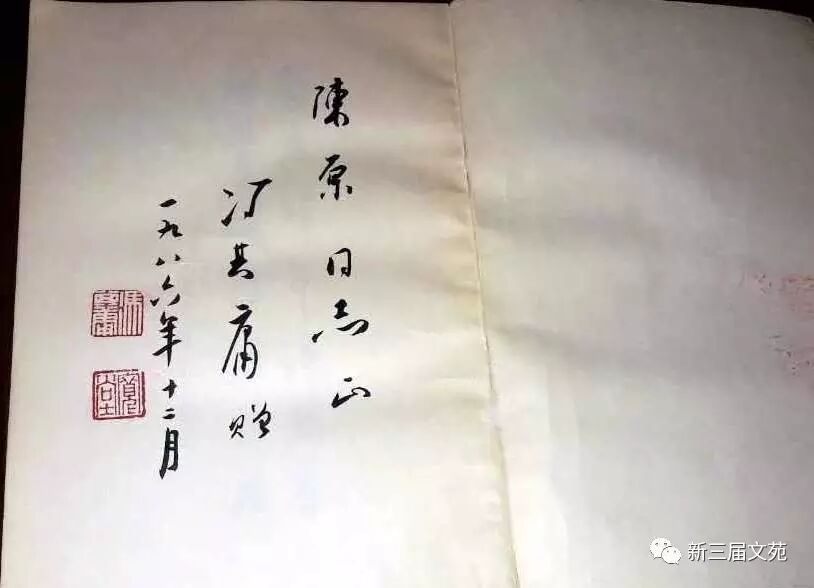 陳原同志正
冯其庸赠
一九八六年十二月
新三届文苑